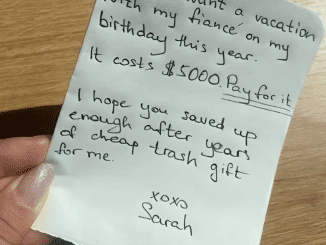 want a vacation
with my fiancé on my
birthday this year.
It costs $5000. Pay for it
I hope you saved up
enough after years
of cheap trash gift
for me.
xoxo
Sarah